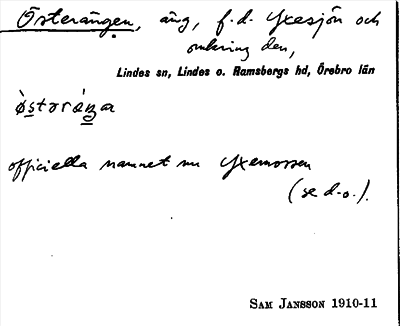 Österängen, äng, f.d. Yxesjön och
omkring den,
Lindes sn, Lindes o. Ramsbergs hd, Örebro län
officiella namnet nu Yxemossen
(se d.o.).
SAM JANSSON 1910-11